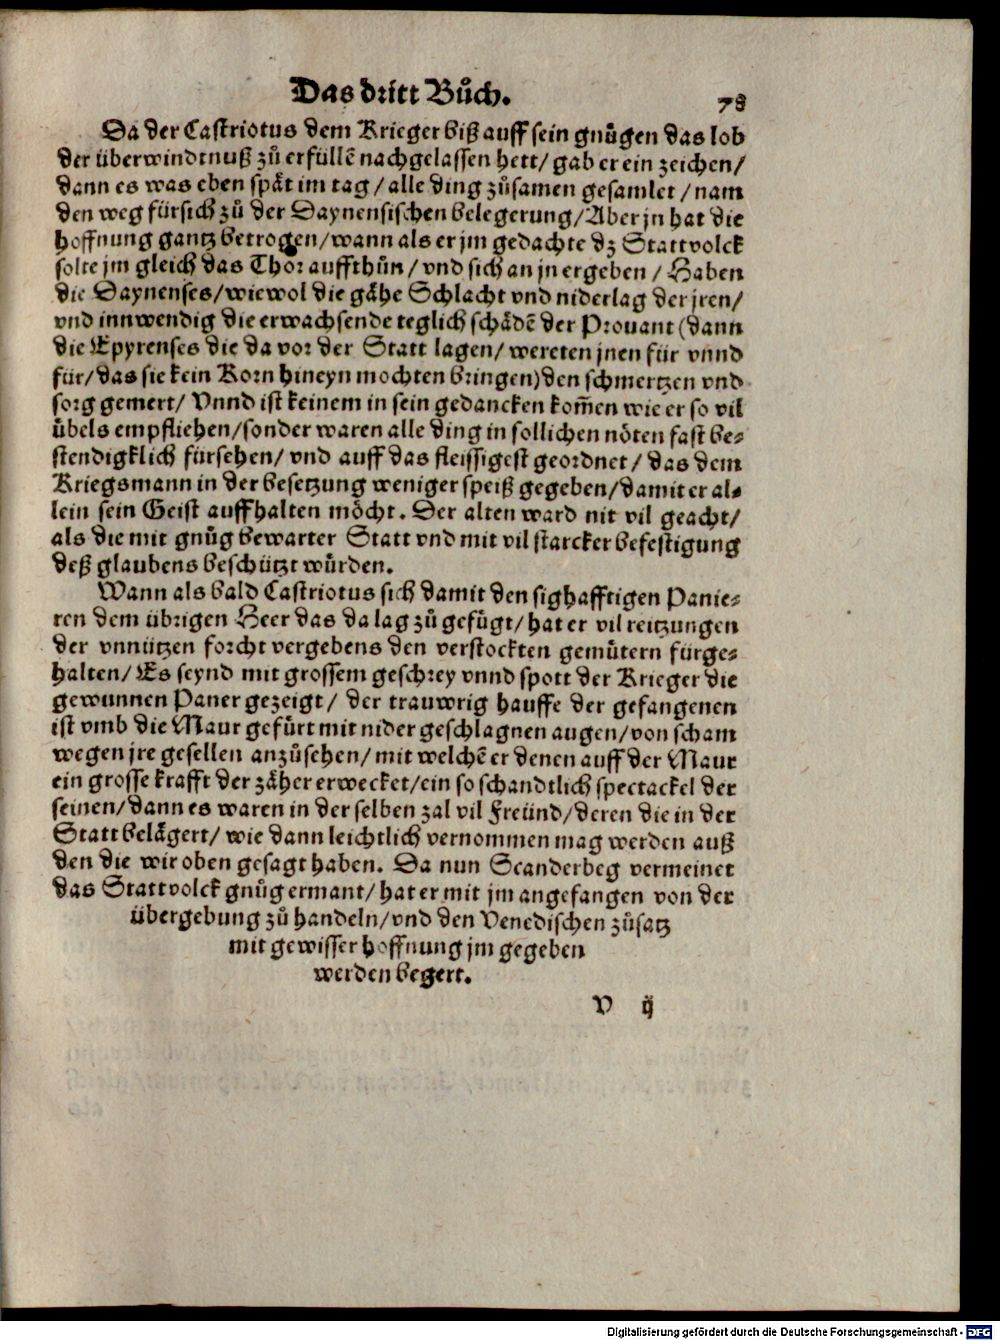 Das dritt Bůch.
78
Da der Castriotus dem Krieger biß auff sein gnügen das lob
der überwindtnuß zů erfüllē nachgelassen hett/ gab er ein zeichen/
dann es was eben spåt im tag / alle ding zůsamen gesamlet / nam
den weg fürsich zů der Daynensischen belegerung/ Aber jn hat die
hoffnung gantz betrogen/ wann als er jm gedachte dz Stattvolck
solte jm gleich das Thor auffthůn/ vnd sich an jn ergeben / Haben
die Daynenses/ wiewol die gåhe Schlacht vnd niderlag der jren/
vnd innwendig die erwachsende teglich schådē der Prouant (dann
die Epyrenses die da vor der Statt lagen/ wereten jnen für vnnd
für/ das sie kein Korn hineyn mochten bringen) den schmertzen vnd
sorg gemert/ Vnnd ist keinem in sein gedancken kom̄en wie er so vil
übels empfliehen/ sonder waren alle ding in sollichen nöten fast be⸗
stendigklich fürsehen/ vnd auff das fleissigest geordnet / das dem
Kriegsmann in der besetzung weniger speiß gegeben/ damit er al⸗
lein sein Geist auffhalten möcht. Der alten ward nit vil geacht/
als die mit gnůg bewarter Statt vnd mit vil starcker befestigung
deß glaubens beschützt würden.
Wann als bald Castriotus sich damit den sighafftigen Panie⸗
ren dem übrigen Heer das da lag zů gefügt/ hat er vil reitzungen
der vnnützen forcht vergebens den verstockten gemütern fürge⸗
halten/ Es seynd mit grossem geschrey vnnd spott der Krieger die
gewunnen Paner gezeigt / der trauwrig hauffe der gefangenen
ist vmb die Maur gefürt mit nider geschlagnen augen/ von scham
wegen jre gesellen anzůsehen/ mit welchē er denen auff der Maur
ein grosse krafft der zåher erwecket/ ein so schandtlich spectackel der
seinen/ dann es waren in der selben zal vil Freünd/ deren die in der
Statt belågert/ wie dann leichtlich vernommen mag werden auß
den die wir oben gesagt haben. Da nun Scanderbeg vermeinet
das Stattvolck gnůg ermant/ hat er mit jm angefangen von der
übergebung zů handeln/ vnd den Venedischen zůsatz
mit gewisser hoffnung jm gegeben
werden begert.
V ij
Digitalisierung gefördert durch die Deutsche Forschungsgemeinschaft - DFG